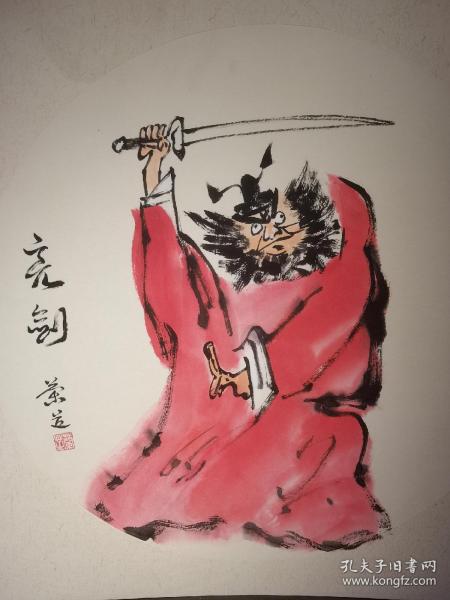 亮剑
孔夫子旧书网
www.kongfz.com